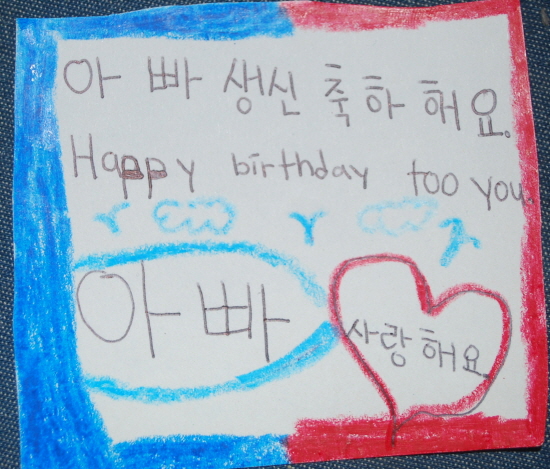 아빠 생신 축하해요.
Happy birthday too you.
아빠
사랑해요.